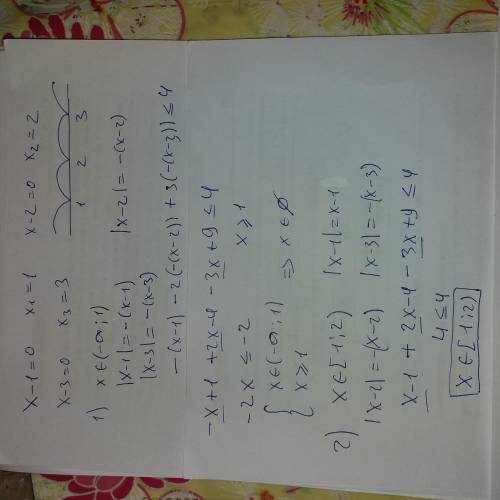 x-1=0 x₁=1 x-2=0 x₂=2
x-3=0 x₃=3
1 2 3
1) x∈(-∞;1)
|x-1|=-(x-1) |x-2|=-(x-2)
|x-3|=-(x-3)
-(x-1)-2(-(x-2))+3(-(x-3))≤4
-x+1+2x-4-3x+9≤4
-2x≤-2 x≥1
{x∈(-∞;1)
x≥1 ⇒ x∈∅
2) x∈[1;2) |x-1|=x-1
|x-2|=-(x-2) |x-3|=-(x-3)
x-1+2x-4-3x+9≤4
4≤4
x∈[1;2)